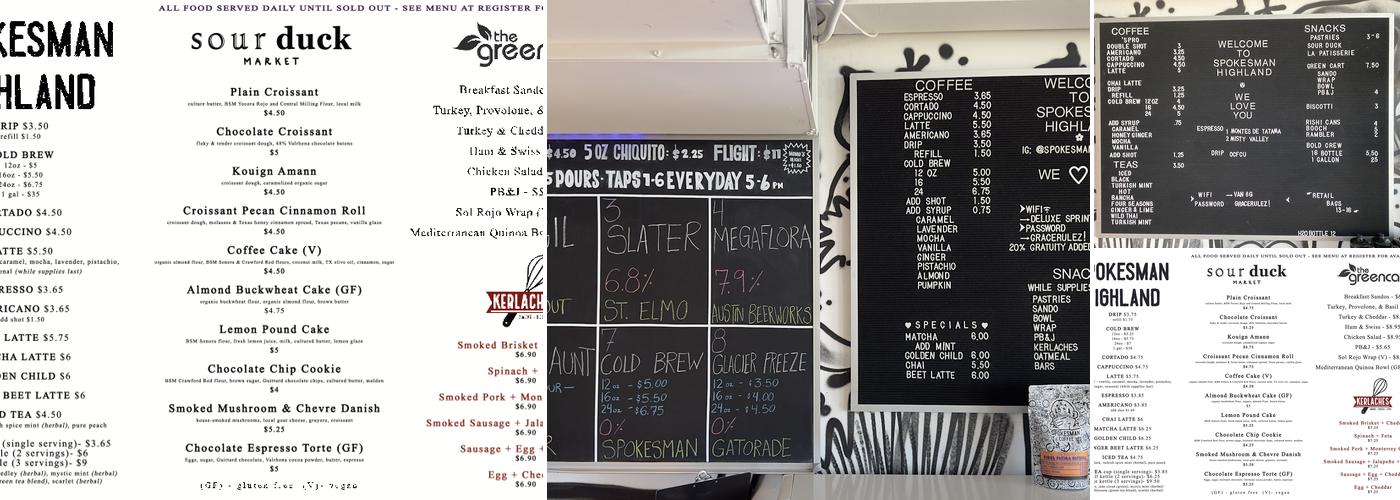 ALL FOOD SERVED DAILY UNTIL SOLD OUT - SEE MENU AT REGISTER
KESMAN
HLAND
RIP $3.50
refill $1.50
OLD BREW
12oz - $5
16oz - $5.50
24oz - $6.75
1 gal - $35
RTADO $4.50
UCCINO $4.50
ATTE $5.50
caramel, mocha, lavender, pistachio,
onal (while supplies last)
RESSO $3.65
RICANO $3.65
dd shot $1.50
LATTE $5.75
HA LATTE $6
DEN CHILD $6
BEET LATTE $6
D TEA $4.50
spice mint (herbal), pure peach
(single serving)- $3.65
le (2 servings)- $6
le (3 servings)- $9
edley (herbal), mystic mint (herbal)
een tea blend), scarlet (herbal)
sour duck
MARKET
Plain Croissant
culture butter, BSM Yecora Rojo and Central Milling Flour, local milk
$4.50
Chocolate Croissant
flaky & tender croissant dough, 48% Valrhona chocolate batons
$5
Kouign Amann
croissant dough, caramelized organic sugar
$4.50
Croissant Pecan Cinnamon Roll
croissant dough, molasses & Texas honey cinnamon spread, Texas pecans, vanilla glaze
$4.50
Coffee Cake (V)
organic almond flour, BSM Sonora & Crawford Red flours, coconut milk, TX olive oil, cinnamon, sugar
$4.50
Almond Buckwheat Cake (GF)
organic buckwheat flour, organic almond flour, brown butter
$4.75
Lemon Pound Cake
BSM Sonora flour, fresh lemon juice, milk, cultured butter, lemon glaze
$5
Chocolate Chip Cookie
BSM Crawford Red flour, brown sugar, Guittard chocolate chips, cultured butter, maldon
$4
Smoked Mushroom & Chevre Danish
house-smoked mushrooms, local goat cheese, gruyere, croissant
$5.25
Chocolate Espresso Torte (GF)
Eggs, sugar, Guittard chocolate, Valrhona cocoa powder, butter, espresso
$5
(GF) - gluten free (V)- vegan
the
green
Breakfast Sando
Turkey, Provolone, &
Turkey & Chedd
Ham & Swiss
Chicken Salad
PB&J - $5
Sol Rojo Wrap (
Mediterranean Quinoa Bo
KERLACH
Smoked Brisket
$6.90
Spinach +
$6.90
Smoked Pork + Mon
$6.90
Smoked Sausage + Jala
$6.90
Sausage + Egg +
$6.90
Egg + Che
$6.90
$4.50 5 OZ CHIQUITO: $2.25 FLIGHT: $11
5 POURS· TAPS 1-6 EVERYDAY 5-6 PM
3
SLATER
6.8%
ST. ELMO
4
MEGAFLORA
7.9%
AUSTIN BEERWORKS
OUT
AUNT
7
COLD BREW
12oz - $5.00
16oz - $5.50
24oz - $6.75
0%
SPOKESMAN
8
GLACIER FREEZE
12oz - $3.50
16oz - $4.00
24oz - $4.50
0%
GATORADE
COFFEE
ESPRESSO 3.65
CORTADO 4.50
CAPPUCCINO 4.50
LATTE 5.50
AMERICANO 3.65
DRIP 3.50
REFILL 1.50
COLD BREW
12 OZ 5.00
16 5.50
24 6.75
ADD SHOT 1.50
ADD SYRUP 0.75
CARAMEL
LAVENDER
MOCHA
VANILLA
GINGER
PISTACHIO
ALMOND
PUMPKIN
♥ SPECIALS ♥
MATCHA 6.00
ADD MINT
GOLDEN CHILD 6.00
CHAI 5.50
BEET LATTE 6.00
WELCO
TO
SPOKES
HIGHLA
IG: @SPOKESMAN
WE ♡
WIFI
DELUXE SPRIN
PASSWORD
GRACERULEZ!
20% GRATUITY ADDE
SNAC
WHILE SUPPLIES
PASTRIES
SANDO
BOWL
WRAP
PB&J
KERLACHES
OATMEAL
BARS
SPOKESMAN
COFFEE
COFFEE
'SPRO
DOUBLE SHOT 3
AMERICANO 3.25
CORTADO 4.50
CAPPUCCINO 4.50
LATTE 5
CHAI LATTE
DRIP 3.25
REFILL 1.25
COLD BREW 12OZ 4
16 4.50
24 5
ADD SYRUP .75
CARAMEL
HONEY GINGER
MOCHA
VANILLA
ADD SHOT 1.25
TEAS 3.50
ICED
BLACK
TURKISH MINT
HOT
BANCHA
FOUR SEASONS
GINGER & LIME
WILD THAI
TURKISH MINT
WELCOME
TO
SPOKESMAN
HIGHLAND
WE
LOVE
YOU
ESPRESSO 1 MONTES DE TATAMA
2 MISTY VALLEY
DRIP OCFCU
WIFI → VAN 6G
PASSWORD GRACERULEZ!
SNACKS
PASTRIES 3-6
SOUR DUCK
LA PATISSERIE
GREEN CART 7.50
SANDO
WRAP
BOWL
PB&J 4
BISCOTTI 3
RISHI CANS 4
BOOCH 5
RAMBLER 2
BOLD CREW
16 BOTTLE 5.50
1 GALLON 25
RETAIL
BAGS
13-16
H2O BOTTLE 12
ALL FOOD SERVED DAILY UNTIL SOLD OUT - SEE MENU AT REGISTER FOR AVA
OKESMAN
IGHLAND
DRIP $3.75
refill $1.75
COLD BREW
CORTADO $4.75
CAPPUCCINO $4.75
LATTE $5.75
ESPRESSO $3.85
AMERICANO $3.85
CHAI LATTE $6
MATCHA LATTE $6.25
GOLDEN CHILD $6.25
GER BEET LATTE $6.25
ICED TEA $4.75
sour duck
MARKET
Plain Croissant
$4.75
Chocolate Croissant
Kouign Amann
Croissant Pecan Cinnamon Roll
Coffee Cake (V)
Almond Buckwheat Cake (GF)
Lemon Pound Cake
Chocolate Chip Cookie
Smoked Mushroom & Chevre Danish
Chocolate Espresso Torte (GF)
(GF) - gluten free (V)- vegan
the
greenca
Breakfast Sandos - $6
Turkey, Provolone, & Basil
Turkey & Cheddar - $8.
Ham & Swiss - $8.95
Chicken Salad - $8.9
PB&J - $5.65
Sol Rojo Wrap (V) - $
Mediterranean Quinoa Bowl (G
KERLACHES
Smoked Brisket + Ched
$7.25
Spinach + Feta
$7.25
Smoked Pork + Monterey
$7.25
Smoked Sausage + Jalapeño +
$7.25
Sausage + Egg + Che
$7.25
Egg + Cheddar
$7.25